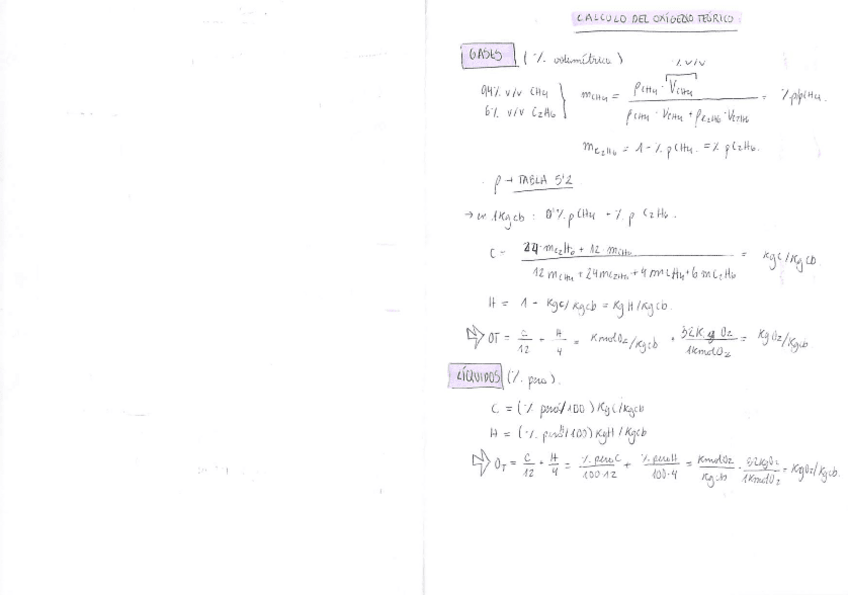 CALCULO DEL OXÍGENO TEÓRICO
GASES (% volumétrico)
% v/v
94% v/v CH4
6% v/v C2H6
mCH4 = ρCH4 · VCH4 / ρCH4 · VCH4 + ρC2H6 · VC2H6 = % p CH4.
mC2H6 = 1 - % p CH4. = % p C2H6.
ρ → TABLA 5'2
→ en 1Kgcb : % p CH4 - % p C2H6.
C = 24·mC2H6 + 12·mCH4 / 12 mCH4 + 24mC2H6 + 4 mCH4 + 6 mC2H6 = KgC/Kgcb.
H = 1 - KgC/Kgcb = KgH/Kgcb.
⇒ OT = C/12 + H/4 = KmolO2/Kgcb · 32Kg O2/1KmolO2 = KgO2/Kgcb
LÍQUIDOS (% peso).
C = (% peso/100) KgC/Kgcb
H = (% peso/100) KgH/Kgcb
⇒ OT = C/12 + H/4 = % pesoC/100·12 + % pesoH/100·4 = KmolO2/Kgcb · 32KgO2/1KmolO2 = KgO2/Kgcb.